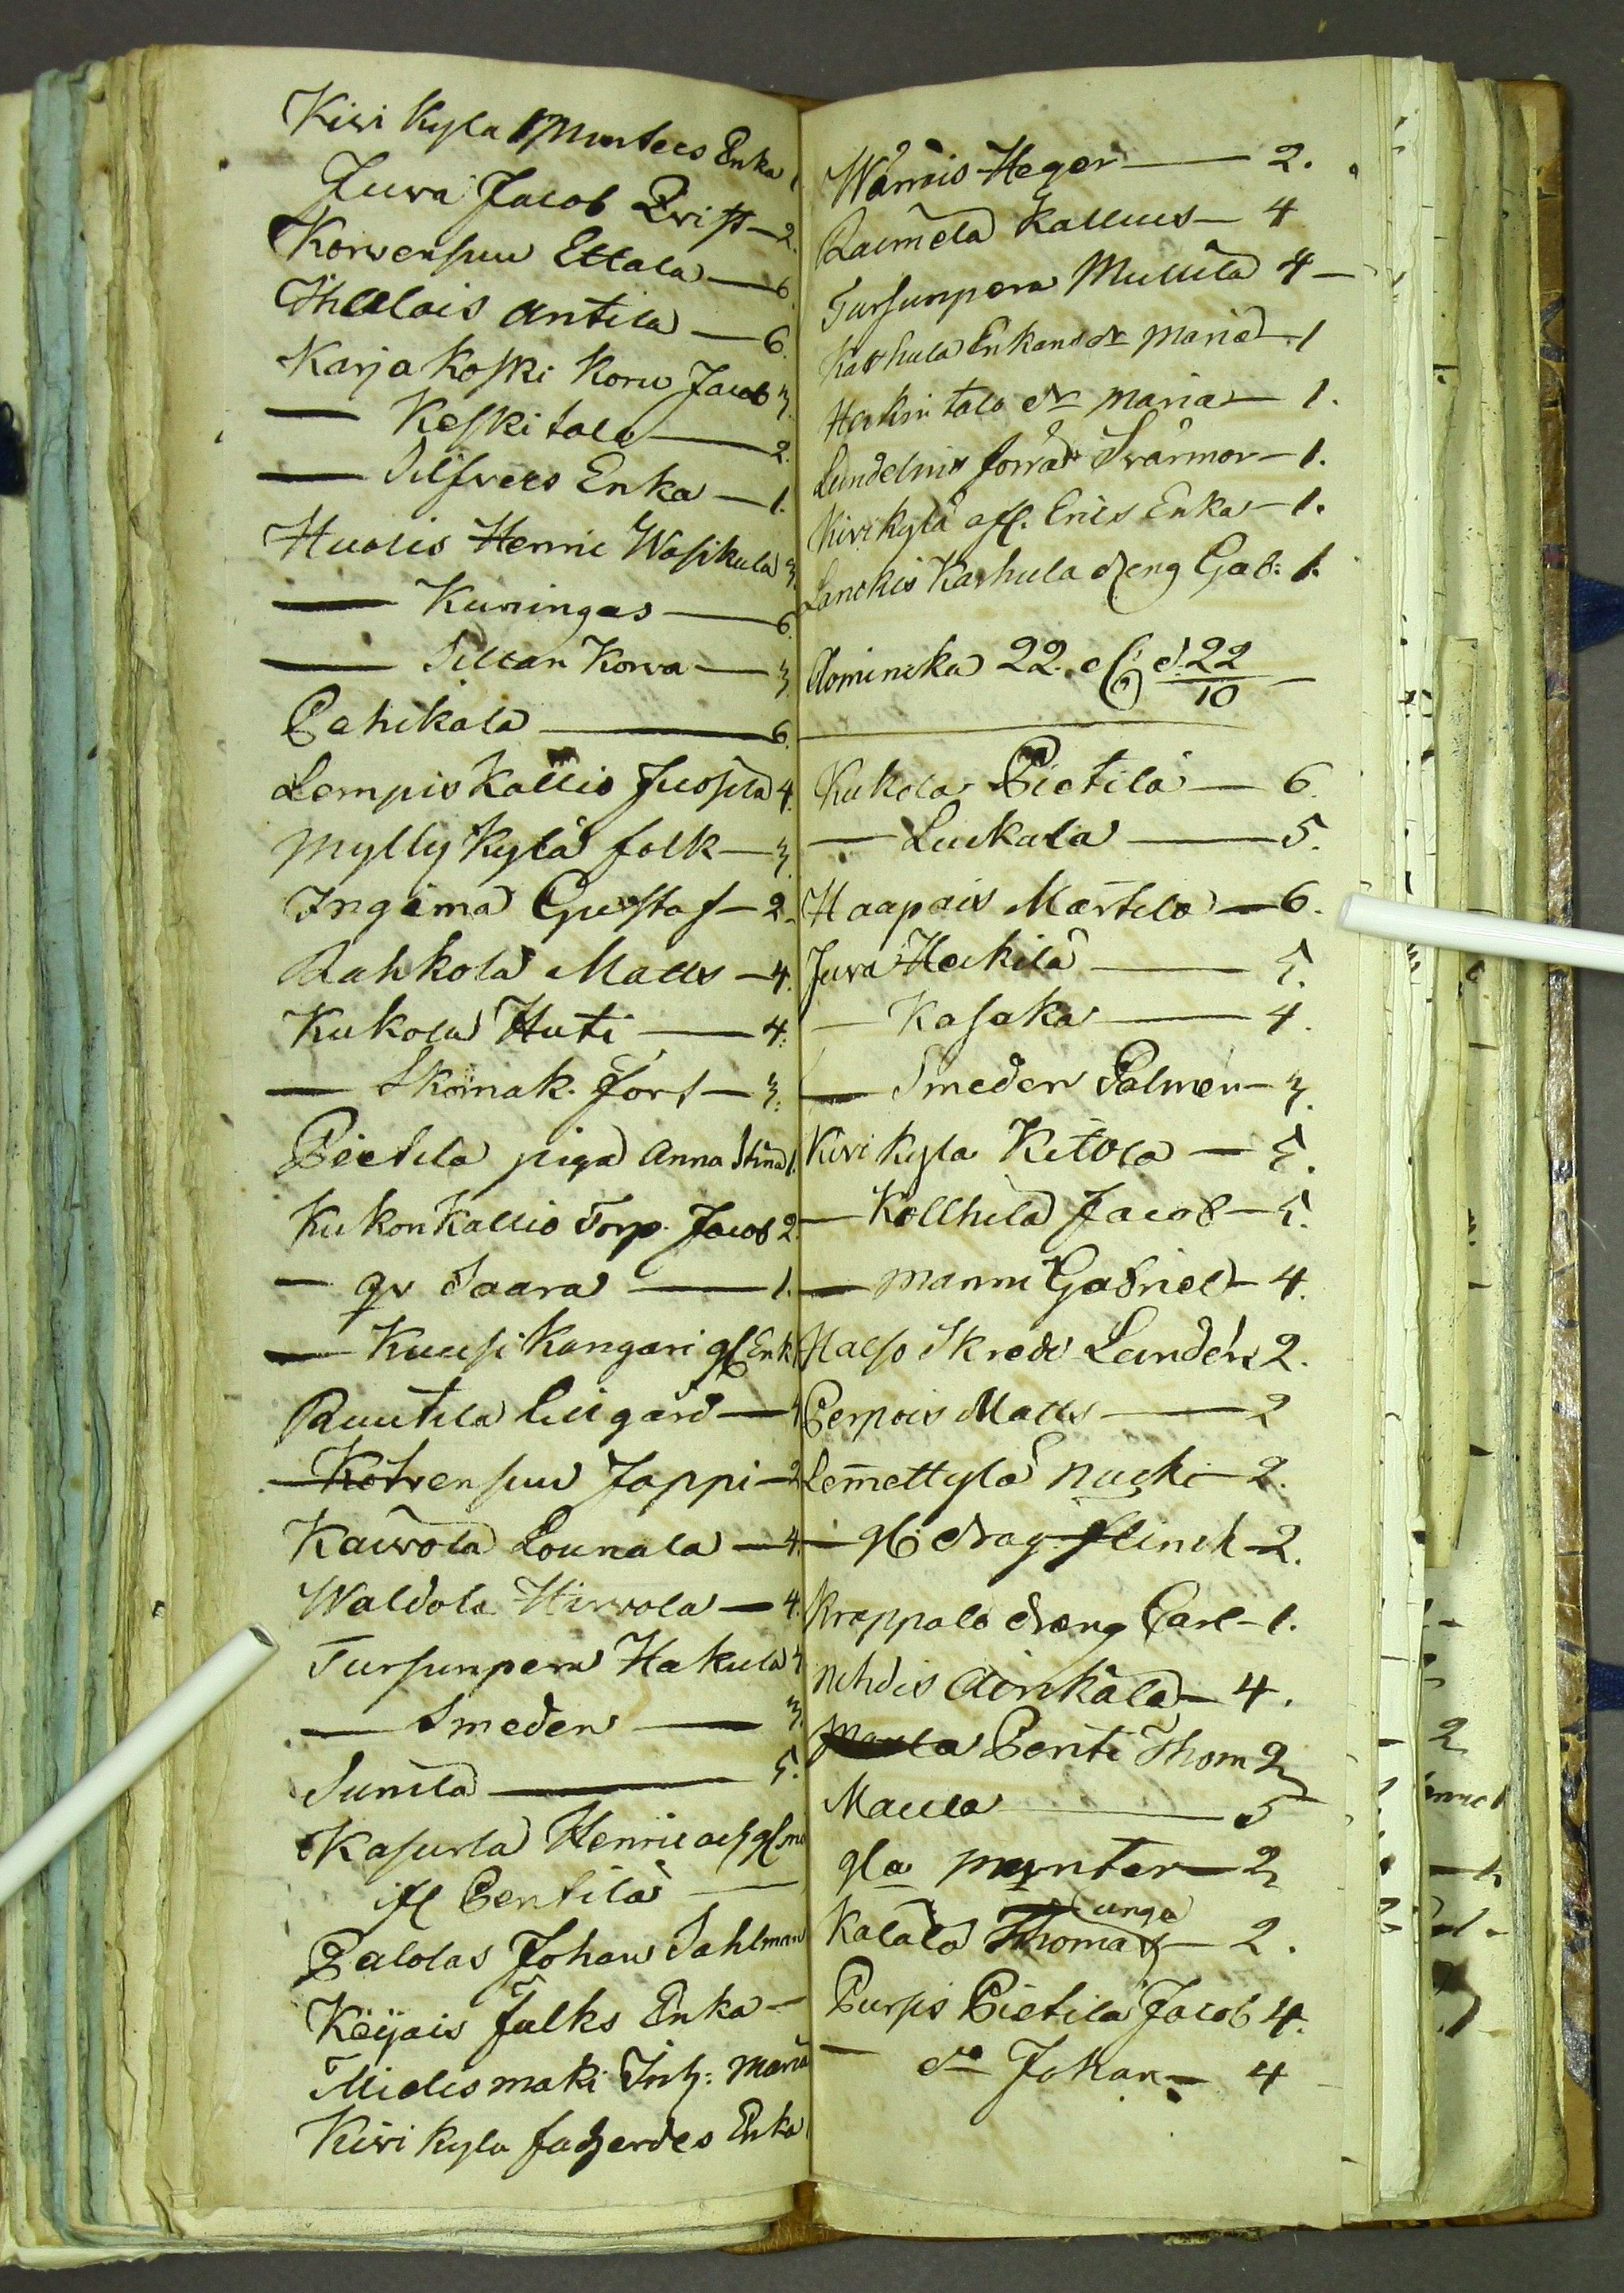 Kiwi kyla Muntees Enka 1
Juva Jacob Qvist — 2.
Korvensuu Ettala — 6.
Ihalais Antila — 6.
Karjakoski Koru Jacob 3.
— Keskitalo — 2.
— Silfvers Enka — 1.
Huolis Henric Wasikula 3.
— Kuningas — 6.
— Siltan Korva — 3.
Pahikala — 6.
Lempis Kallio Juosila 4.
Mylly kylä folk — 3.
Ingima Gustaf — 2.
Rahkola Matts — 4.
Kukola Huti — 4.
— Skomak. Fors — 3.
Pietila piga Anna Stina 1.
Kukonkallio Torp. Jacob 2.
— qv Saara — 1.
— Kuusi kangari gl Enk.
Ruutila lillgård — 4
Korvensuu Jappi — 2
Kaivola Lounala — 4.
Waldola Hirvola — 4.
Tursunpera Hakula 4
— Smeden — 3.
Sunila — 5.
Kasurla Henric
Pentilä —
Palolas Johan Sahlman
Keijais Falks Enka —
Mielismaki Maria
Kiwi kyla Enka
Wärrois Heger — 2.
Raimela Kallius — 4
Tursunpera Mullila 4 —
Karhula Enkans dr Maria — 1
Heikin talo dr Maria — 1.
Lundelius Svärmor — 1.
Kivikylä afl. Erics Enka — 1.
Lanckis Karhula dreng Gab: 1.
Dominicka 22. d. 22/10 —
Kukola Pietilä — 6.
— Luckala — 5.
Haapais Martila — 6.
Juva Heikilä — 5.
— Kasaka — 4.
— Smeden Palmen — 3.
Kivi kyla Kitola — 5.
— Kollhila Jacob — 5.
— Mannu Gabriel — 4.
Halso Skredd Lundén 2.
Perpois Matts — 2
Lemettylä Nuski — 2.
— gl. drag. Flinck — 2.
Kreppala dreng Carl — 1.
Nihdis Äinkälä — 4.
Penti Thom 2
Maula — 5
gla Mynter — 2
Kalala unga Thomas — 2.
Pursis Pietilä Jacob 4.
— do Johan — 4